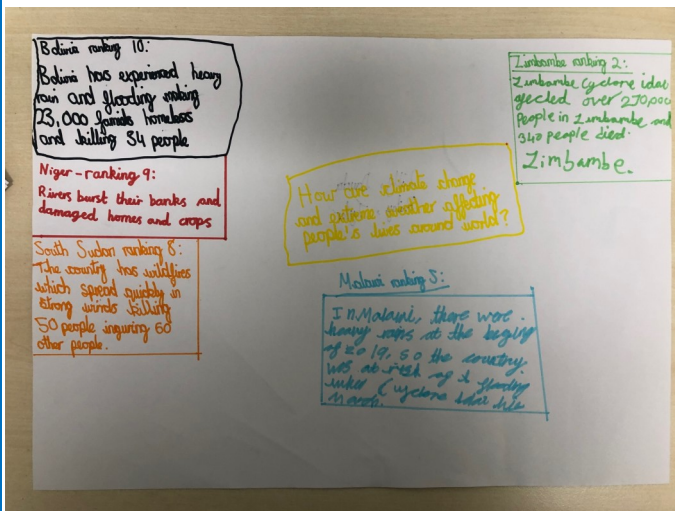 Bolivia ranking 10:
Bolivia has experienced heavy
rain and flooding making
23,000 famils homeless
and killing 34 people
Niger-ranking 9:
Rivers burst their banks and
damaged homes and crops
South Sudan ranking 8:
The country has wildfires
which spread quickly in
strong winds killing
50 people inguring 60
other people.
How are climate change
and extreme weather affecting
people's lives around world?
Malawi ranking 5:
In Malawi, there were
heavy rains at the beging
of 2019, so the country
was at risk of flooding
when Cyclone Idai
March.
Zimbambe ranking 2:
Zimbambe Cyclone idai
people in Zimbambe and
340 people died.
Zimbambe.